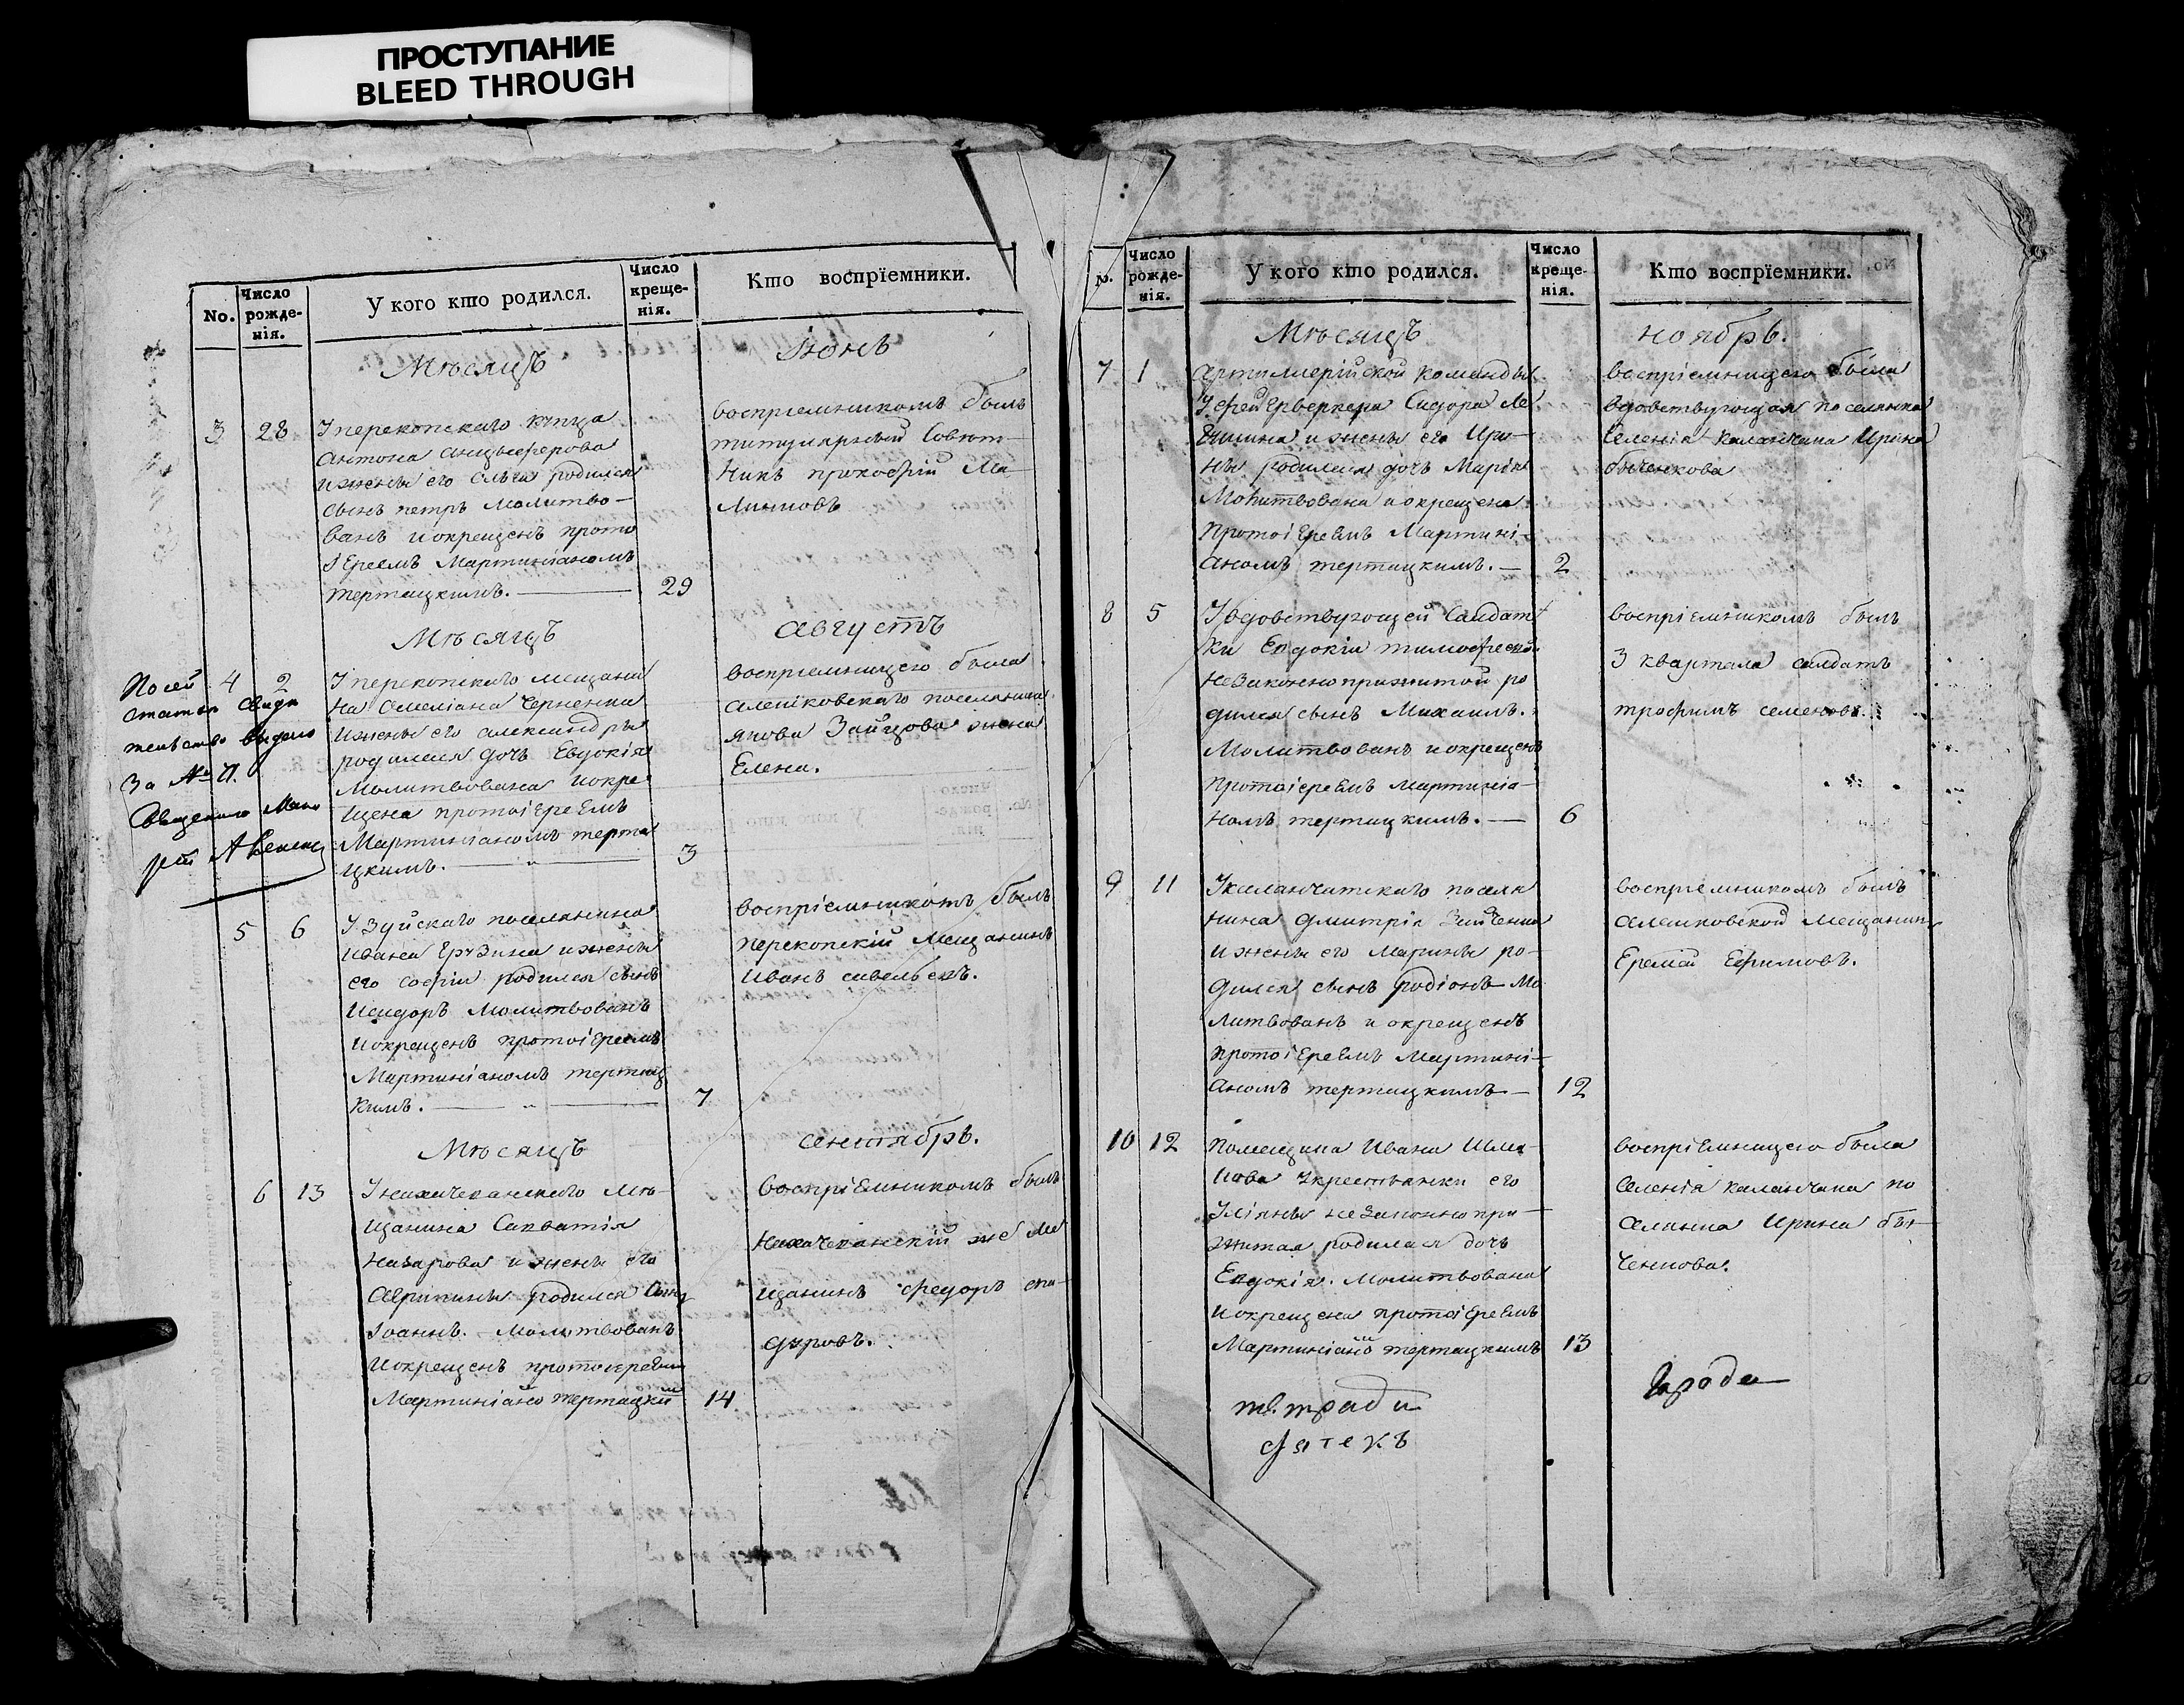 ПРОСТУПАНИЕ
BLEED THROUGH
No.
Число рожде-нія.
У кого кто родился.
Число креще-нія.
Кто воспріемники.
Мѣсяцъ
Іюнь
3 28
У перекопскаго купца
Антона
и жены его родился
сынъ петръ молитво-
ванъ и окрещенъ прото
іереемъ Мартиніаномъ
тертацкимъ.
29
воспріемникомъ былъ
титулярный Совѣт-
никъ прокофій Ма-
Мѣсяцъ
Августъ
По сей
статьи свидѣ
тельство выдано
За №
4 2
У перекопскаго мещани
на Омеліана Черненка
и жены его александры
родилася дочь Евдокія
молитвована и окре
щена протоіереемъ
Мартиніаномъ терта
цкимъ.
3
воспріемницею была
алешковскаго поселянина
якова Зайцова жена
Елена.
5 6
У Зуйскаго поселянина
ивана Грузина и жены
его софіи родился сынъ
Исидоръ молитвованъ
и окрещенъ протоіереемъ
Мартиніаномъ тертац
кимъ.
7
воспріемникомъ былъ
перекопскій мещанинъ
иванъ савельевъ.
Мѣсяцъ
сентябрь.
6 13
У нахичеванскаго мѣ-
щанина Савватія
назарова и жены его
агрипины родился сынъ
Іоаннъ. молитвованъ
и окрещенъ протоіереемъ
Мартиніано тертацки
14
воспріемникомъ былъ
нахичеванскій же ме
щанинъ федоръ
No.
Число рожде-нія.
У кого кто родился.
Число креще-нія.
Кто воспріемники.
Мѣсяцъ
ноябрь.
7 1
артиллерійской команды
У фейерверкера Сидора
и жены его Ири-
ны родилася дочь Марія
молитвована и окрещена
протоіереемъ Мартині-
аномъ тертацкимъ.
2
воспріемницею была
вдовствующая поселянка
селенія каланчака Ирина
быченкова
8 5
У вдовствующей салдат
ки Евдокіи тимофеевой
незаконноприжитой ро
дился сынъ Михаилъ.
молитвованъ и окрещенъ
протоіереемъ мартиніа-
номъ тертацкимъ.
6
воспріемникомъ былъ
3 квартала салдатъ
трофимъ семеновъ.
9 11
У каланчатскаго поселя
нина дмитрія
и жены его Марины ро-
дился сынъ родіонъ мо
литвованъ и окрещенъ
протоіереемъ Мартині-
аномъ тертацкимъ
12
воспріемникомъ былъ
алешковской мещанин
Еремей Ефимовъ.
10 12
Помещика Ивана
у крестьянки его
незаконно при-
житая родилася дочь
Евдокія. молитвована
и окрещена протоіереемъ
Мартиніано тертацкимъ
13
воспріемницею была
селенія каланчака по
селянка Ирина бы-
ченкова.
тетради
города